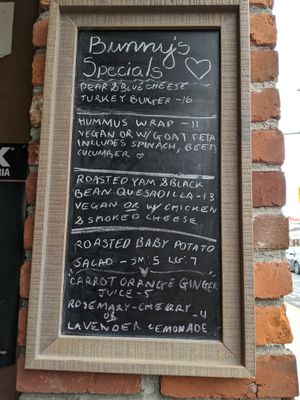 Bunny's
Specials ♡
PEAR & BLUE CHEESE
TURKEY BURGER -16
HUMMUS WRAP - 11
VEGAN OR W/ GOAT FETA
INCLUDES SPINACH, BEETS
CUCUMBER ♡
ROASTED YAM & BLACK
BEAN QUESADILLA - 13
VEGAN OR W/ CHICKEN
& SMOKED CHEESE
ROASTED BABY POTATO
SALAD - SM: 5 LG: 7
CARROT ORANGE GINGER
JUICE - 5
ROSEMARY-CHERRY - 4
OR
LAVENDER LEMONADE
RIA